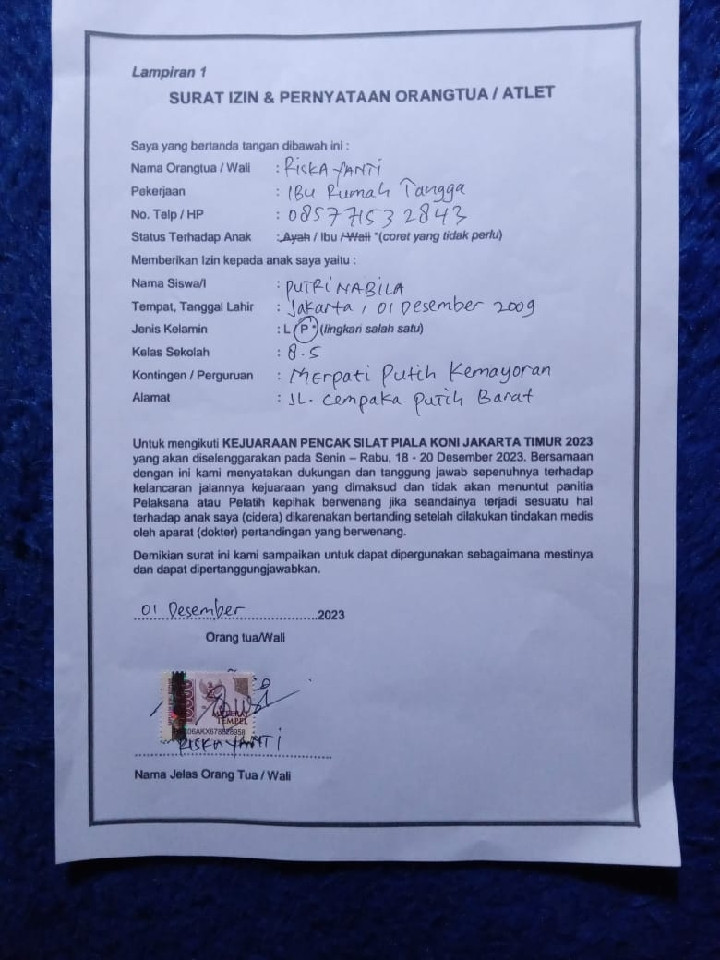 Lampiran 1
SURAT IZIN & PERNYATAAN ORANGTUA / ATLET
Saya yang bertanda tangan dibawah ini :
Nama Orangtua / Wali : RISKA YANTI
Pekerjaan : IBU Rumah Tangga
No. Telp / HP : 085771532843
Status Terhadap Anak : Ayah / Ibu / Wali *(coret yang tidak perlu)
Memberikan Izin kepada anak saya yaitu :
Nama Siswa/I : PUTRI NABILA
Tempat, Tanggal Lahir : Jakarta, 01 Desember 2009
Jenis Kelamin : L P* (lingkari salah satu)
Kelas Sekolah : 8.5
Kontingen / Perguruan : Merpati Putih Kemayoran
Alamat : JL. Cempaka Putih Barat
Untuk mengikuti KEJUARAAN PENCAK SILAT PIALA KONI JAKARTA TIMUR 2023
yang akan diselenggarakan pada Senin – Rabu, 18 - 20 Desember 2023. Bersamaan
dengan ini kami menyatakan dukungan dan tanggung jawab sepenuhnya terhadap
kelancaran jalannya kejuaraan yang dimaksud dan tidak akan menuntut panitia
Pelaksana atau Pelatih kepihak berwenang jika seandainya terjadi sesuatu hal
terhadap anak saya (cidera) dikarenakan bertanding setelah dilakukan tindakan medis
oleh aparat (dokter) pertandingan yang berwenang.
Demikian surat ini kami sampaikan untuk dapat dipergunakan sebagaimana mestinya
dan dapat dipertanggungjawabkan.
01 Desember 2023
Orang tua/Wali
TEMPEL
RISKA YANTI
Nama Jelas Orang Tua / Wali